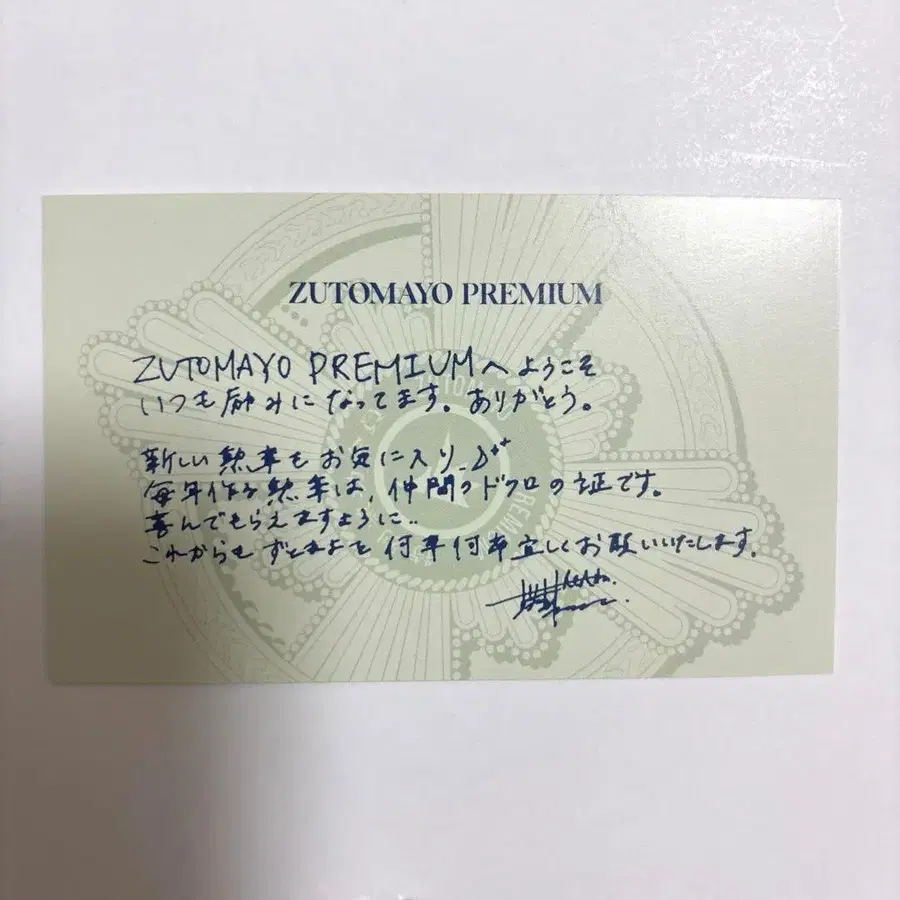 ZUTOMAYO PREMIUM
ZUTOMAYO PREMIUMへようこそ
いつも励みになってます。ありがとう。
新しい勲章もお気に入り
毎年作る勲章は、仲間の証です。
喜んでもらえますように..
これからもずとまよを何卒何卒宜しくお願いいたします。